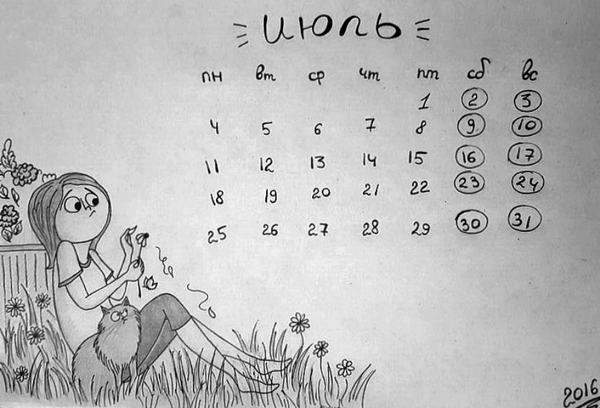 июль
пн вт ср чт пт сб вс
1 2 3
4 5 6 7 8 9 10
11 12 13 14 15 16 17
18 19 20 21 22 23 24
25 26 27 28 29 30 31
2016